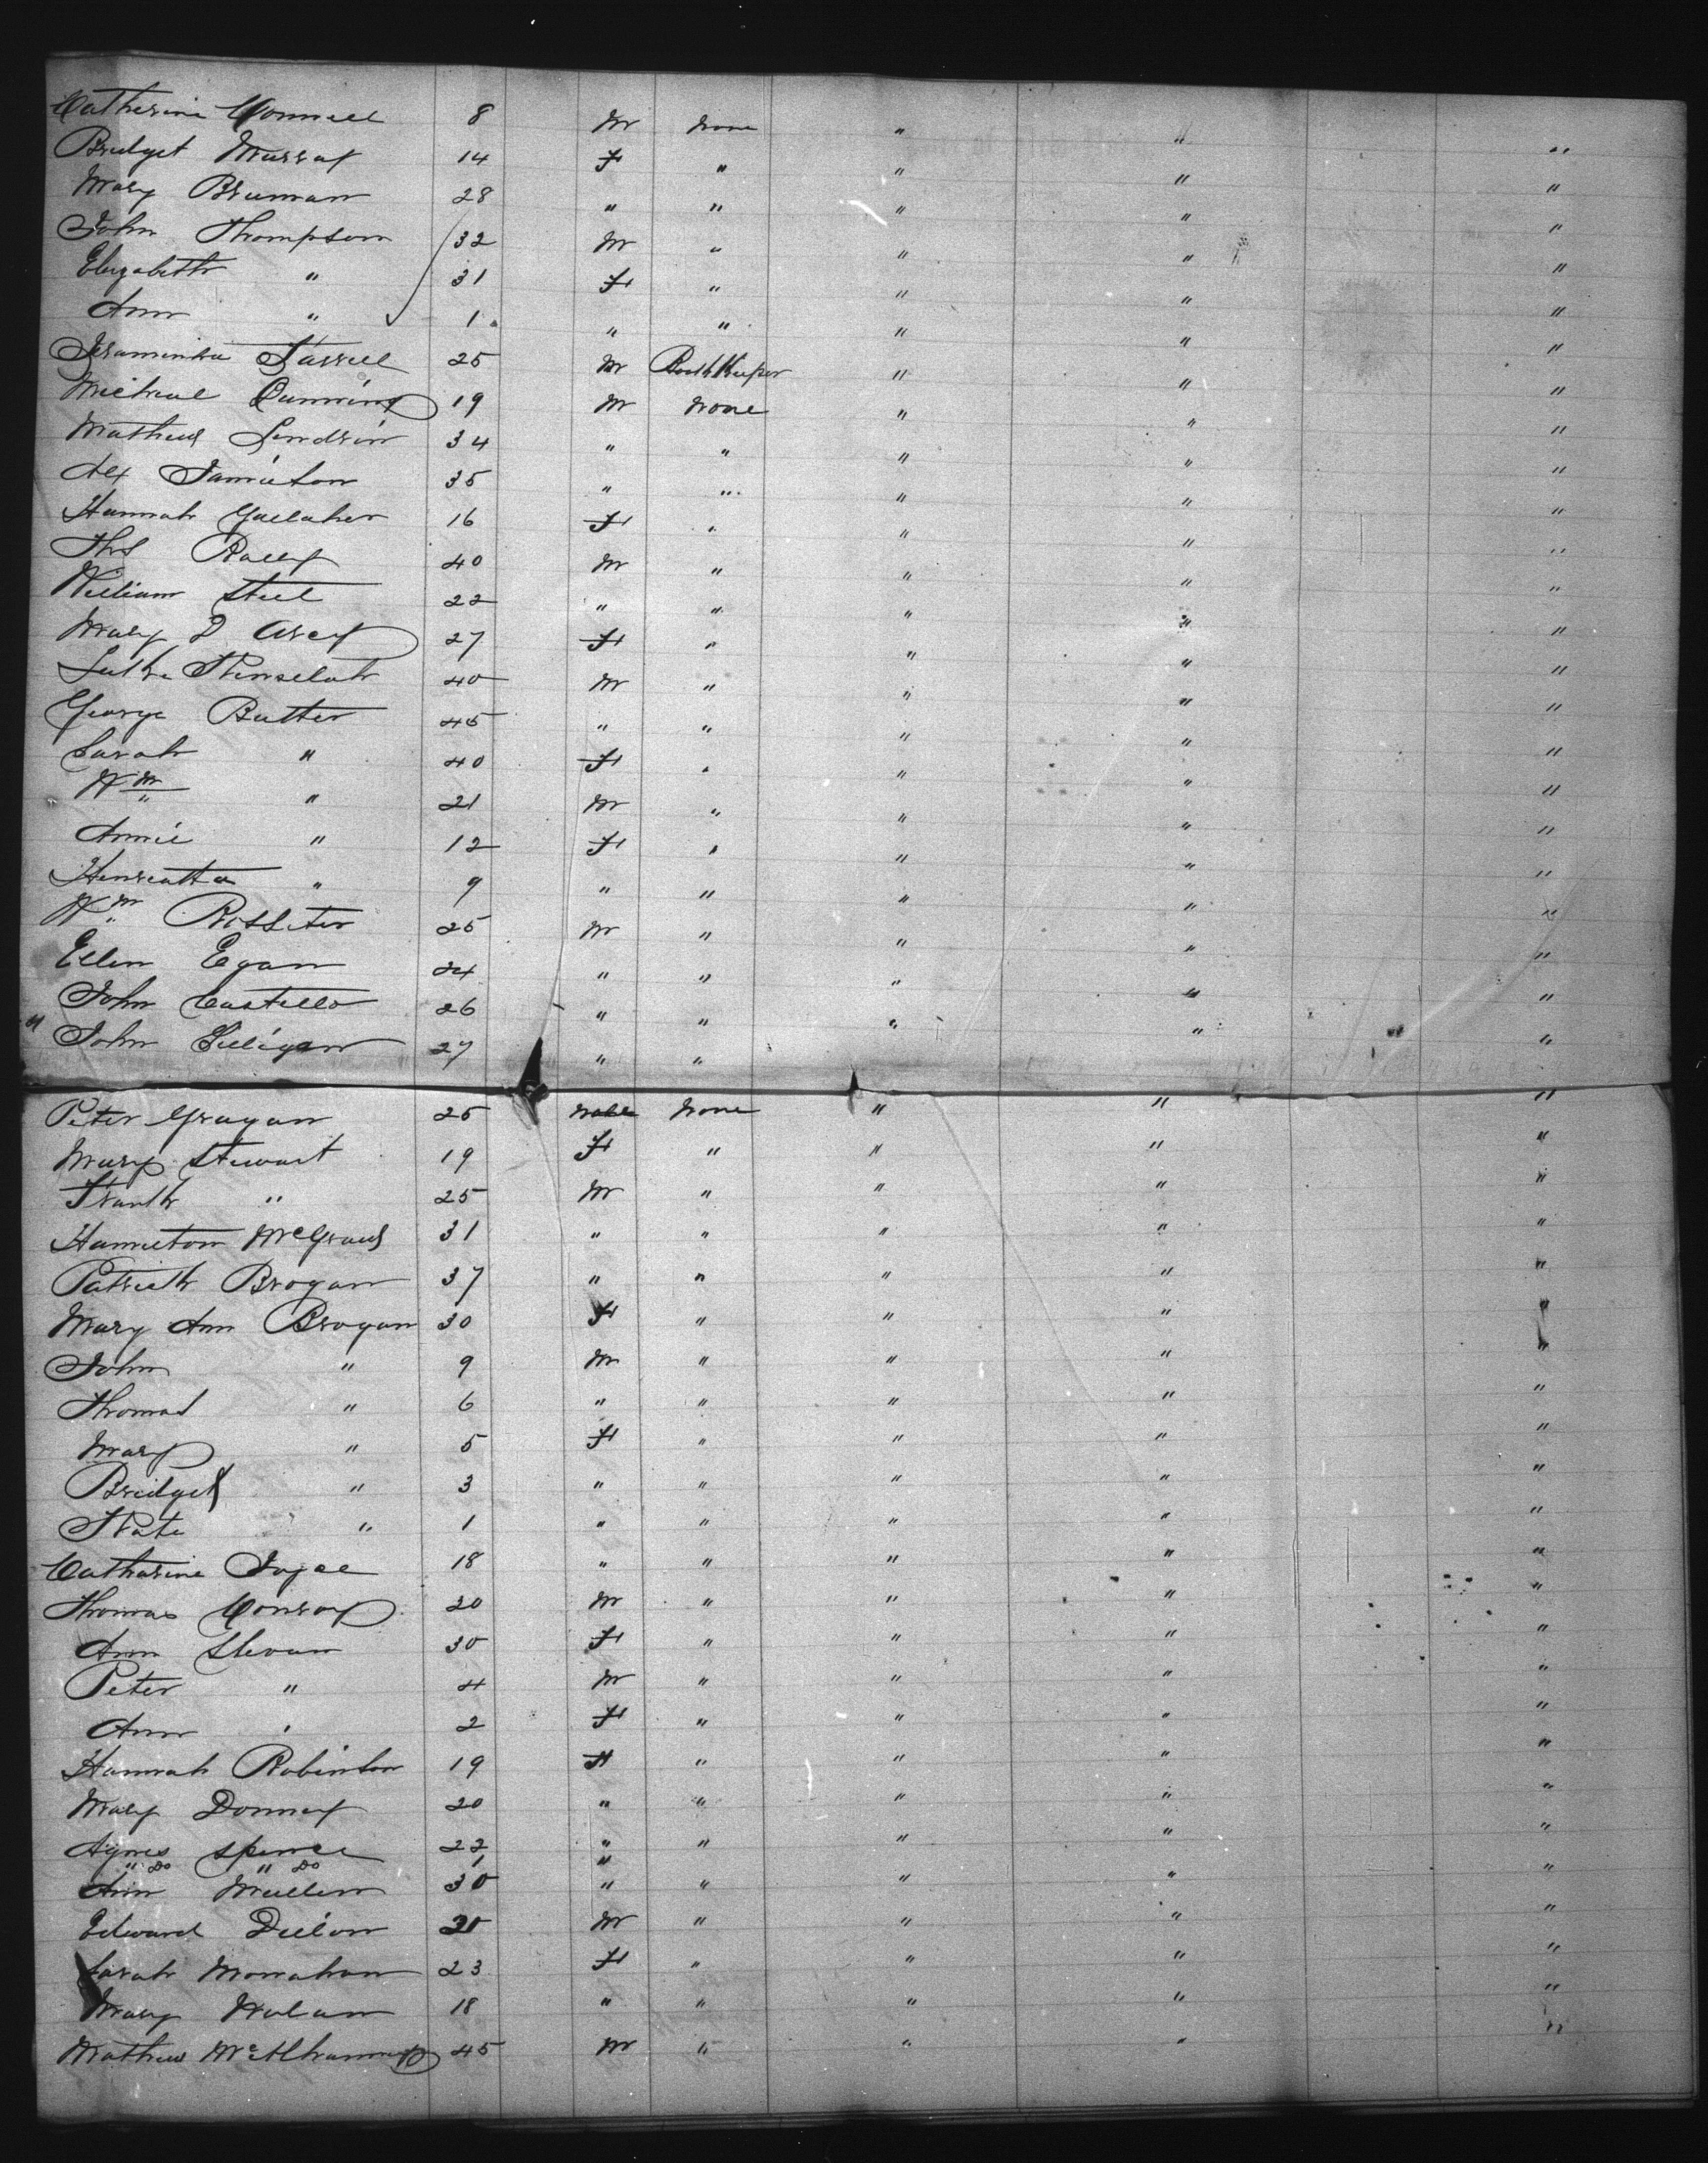 Catherine Connell 8 M None " " "
Bridget Murray 14 F " " " "
Mary Brennan 28 " " " " "
John Thompson 32 M " " " "
Elizabeth " 31 F " " " "
Ann " 1 " " " " "
Farrell 25 M Book Keeper " " "
Michael Cumming 19 M None " " "
Mathew 34 " " " " "
Alex Jamieton 35 " " " " "
Hannah Gallaher 16 F " " " "
Ths Rally 40 M " " " "
William Steel 22 " " " " "
Mary D Arcy 27 F " " " "
Luke 40 M " " " "
George Butter 45 " " " " "
Sarah " 40 F " " " "
Wm " 21 M " " " "
Annie " 12 F " " " "
Henreatta " 9 " " " " "
Wm Rossiter 25 M " " " "
Ellen Egan 24 " " " " "
John Castello 26 " " " " "
John Gilligan 27 " " " " "
Peter Grogan 25 Male None " " "
Mary Stewart 19 F " " " "
Frank " 25 M " " " "
Hamilton 31 " " " " "
Patrick Brogan 37 " " " " "
Mary Ann Brogan 30 F " " " "
John " 9 M " " " "
Thomas " 6 " " " " "
Mary " 5 F " " " "
Bridget " 3 " " " " "
Kate " 1 " " " " "
Catharine Joyce 18 " " " " "
Thomas Conroy 20 M " " " "
Ann Slevan 30 F " " " "
Peter " 4 M " " " "
Ann " 2 F " " " "
Hannah Robinson 19 F " " " "
Mary Donney 20 " " " " "
Agnes Spence 22 " " " " "
" Do " Do 1 "
Ann Mullen 30 " " " " "
Edward Dillon M " " " "
Sarah Monahan 23 F " " " "
Mary 18 " " " " "
Mathew 45 M " " " "